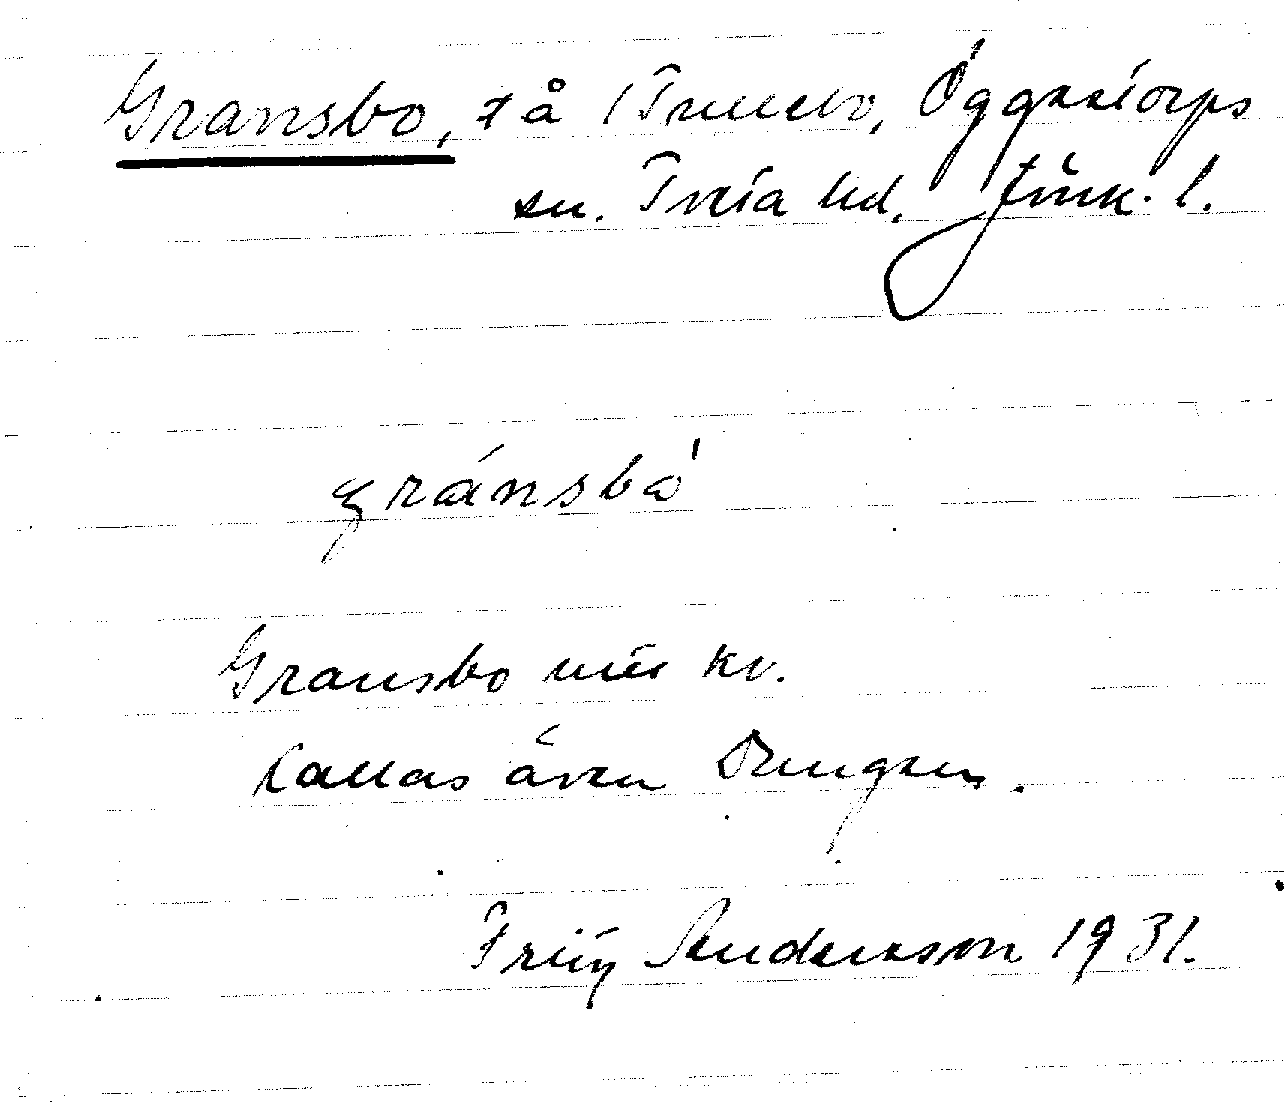 Gransbo, t å Truebo, Öggestorps
sn. Tveta hd. Jönk. l.
gránsbå
Gransbo utis kv.
Kallas även Dungen.
Fritz Andersson 1931.